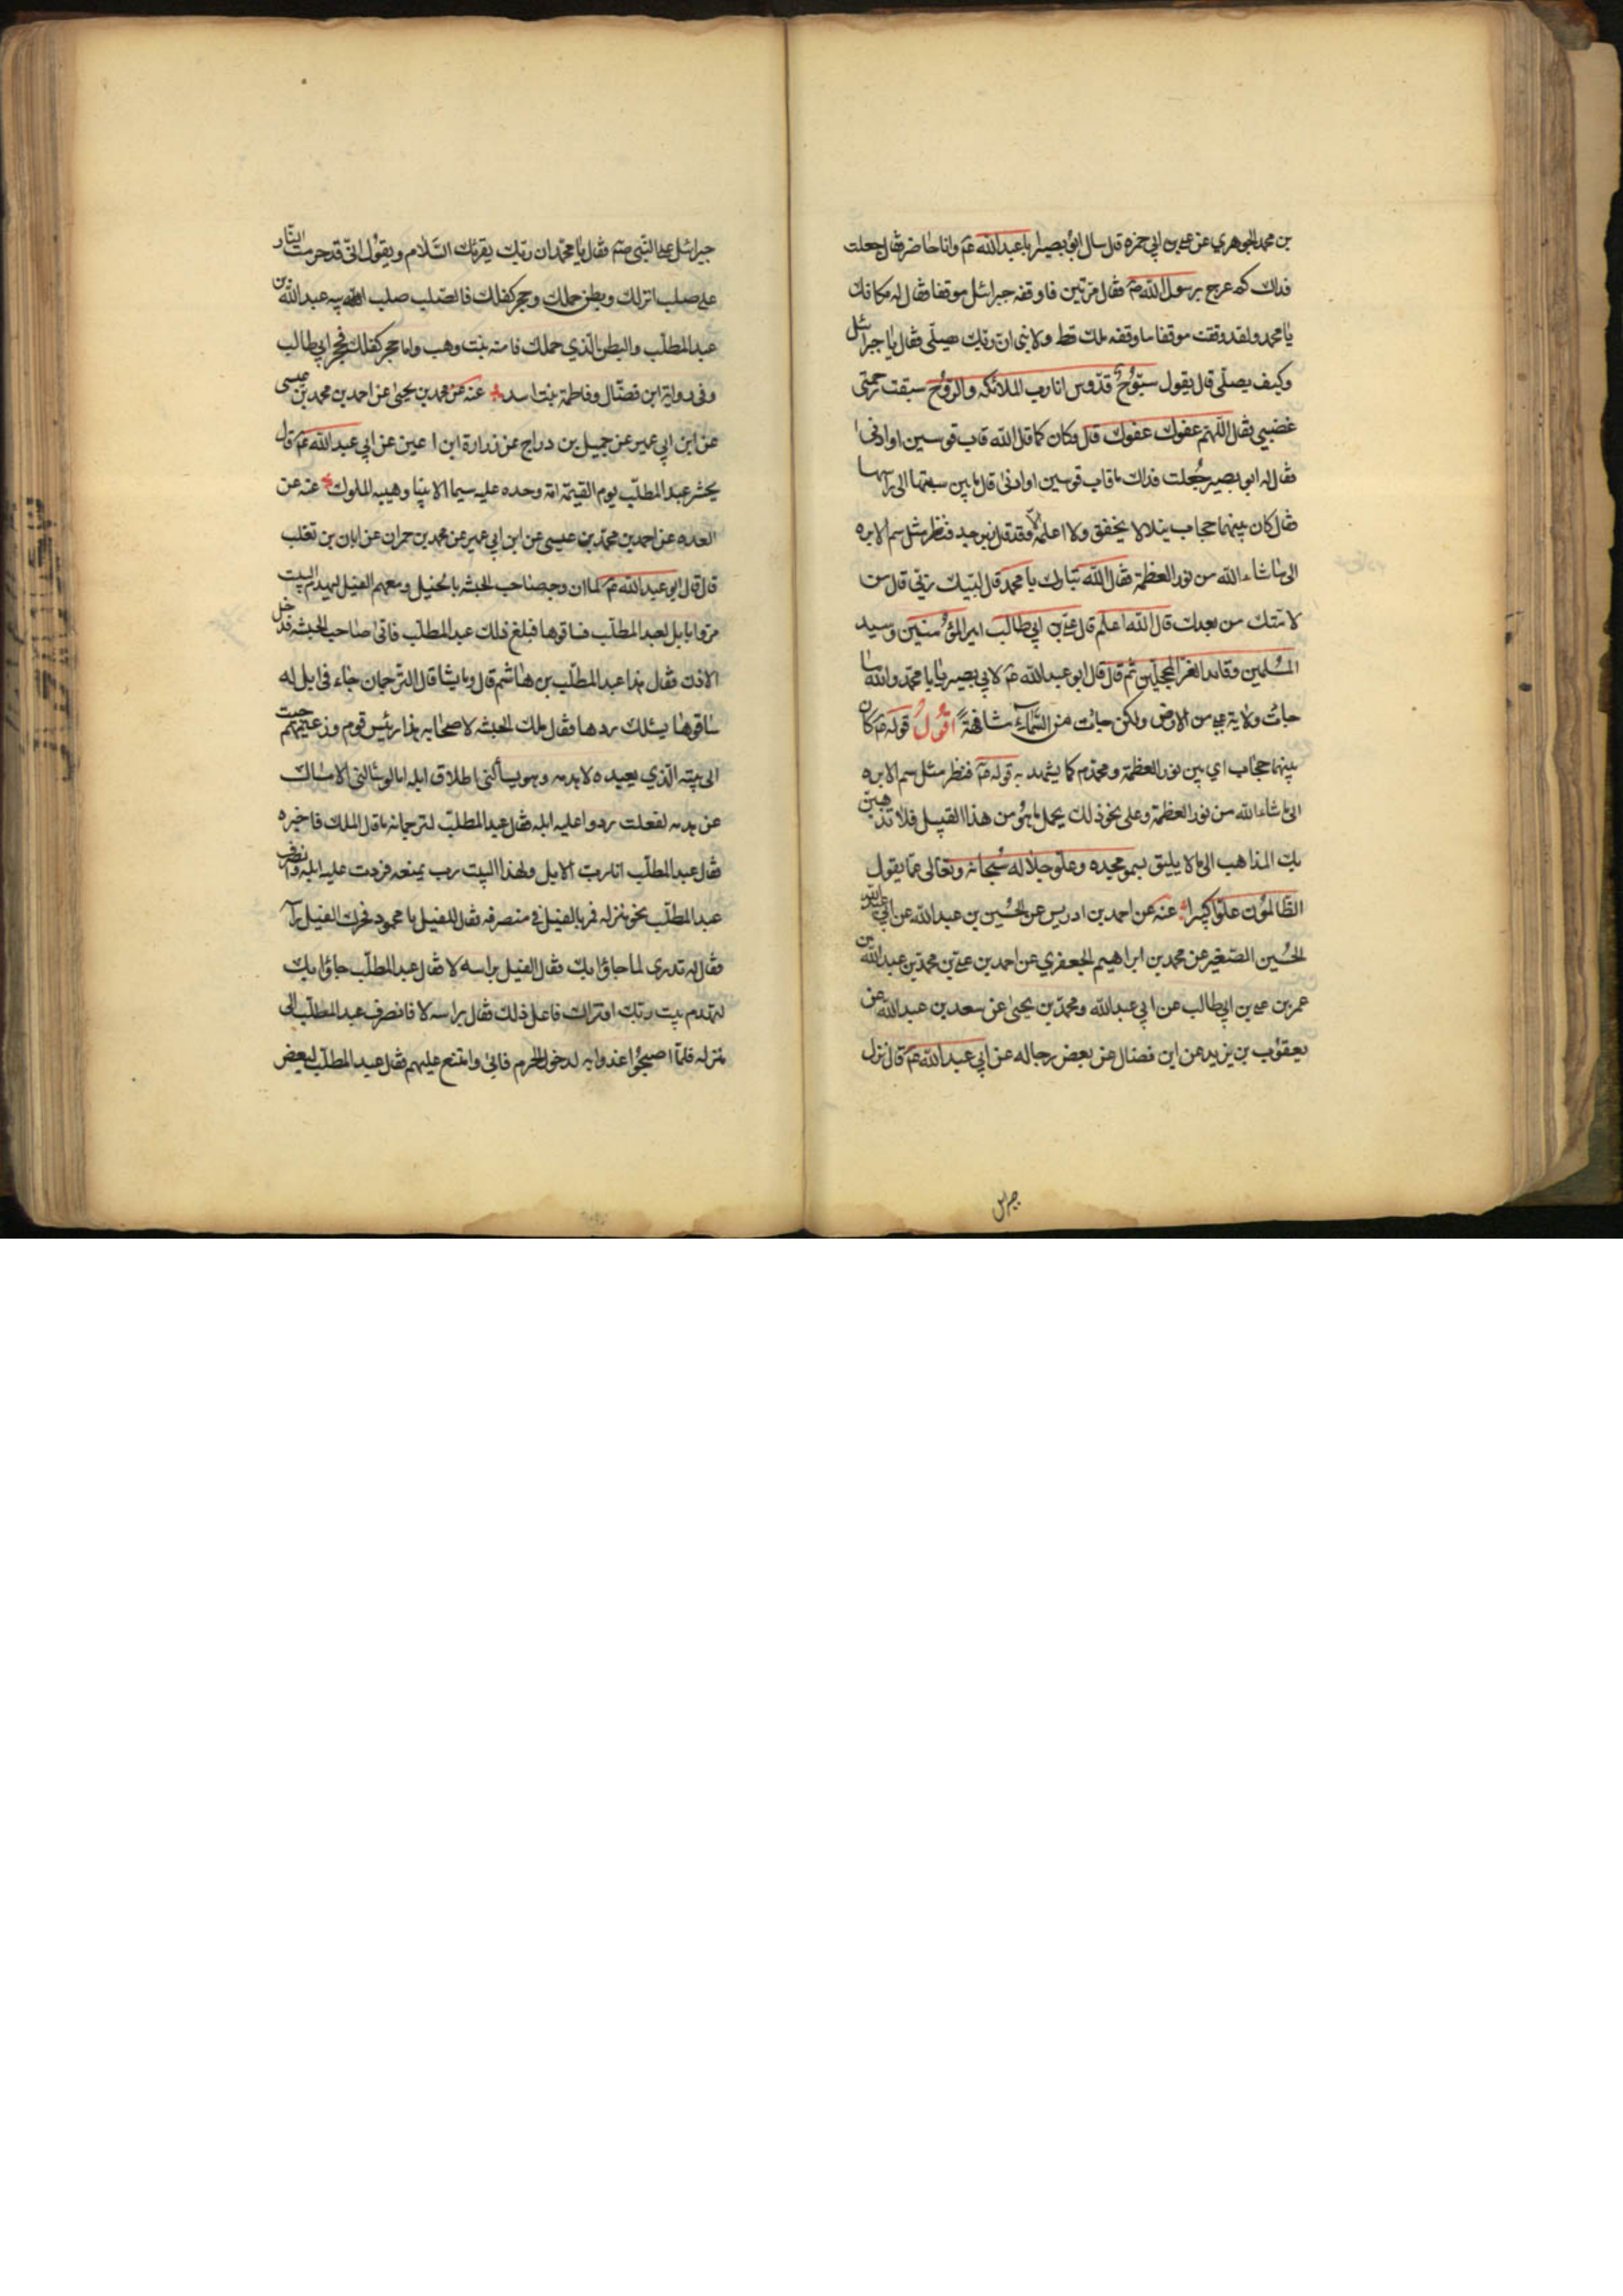 بن محمد الجوهري عن علي بن ابي حمزه قال سال ابو بصير ابا عبد الله ع وانا حاضر فقال جعلت
فداك كم عرج برسول الله ص فقال مرتين فاوقفه جبرائيل موقفا فقال له مكانك
يا محمد ولقد وقفت موقفا ما وقفه ملك قط ولا نبي ان ربك يصلي فقال يا جبرائيل
وكيف يصلي قال يقول سبّوح قدّوس انا رب الملائكه والروح سبقت رحمتي
غضبي فقال اللهم عفوك عفوك قال وكان كما قال الله قاب قوسين او ادنى
فقال له ابو بصير جُعلت فداك ما قاب قوسين او ادنى قال ما بين سيتها الى راسها
فقال كان بينهما حجاب يتلالا يخفق ولا اعلمه الا وقد قال زبرجد فنظر مثل سم الابره
الى ما شاء الله من نور العظمة فقال الله تبارك يا محمد قال لبيك ربي قال من
لامتك من بعدك قال الله اعلم قال علي بن ابي طالب امير المؤمنين وسيد
المسلمين وقائد الغر المحجلين ثم قال قال ابو عبد الله ع لابي بصير يا با محمد والله ما
جاءت ولاية علي من الارض ولكن جاءت من السماء مشافهةً اقول قوله ع كان
بينهما حجاب اي بين نور العظمة ومحمد ص كما يشهد به قوله ع فنظر مثل سم الابره
الى ما شاء الله من نور العظمة وعلى نحو ذلك يحمل ما هو من هذا القبيل فلا تذهبن
بك المذاهب الى ما لا يليق بسمو مجده وعلو جلاله سبحانه وتعالى عما يقول
الظالمون علوا كبيرا عنه عن احمد بن ادريس عن الحسين بن عبد الله عن ابي عبد الله
الحسين الصغير عن محمد بن ابراهيم الجعفري عن احمد بن علي بن محمد بن عبد الله بن
عمر بن علي بن ابي طالب عن ابي عبد الله ومحمد بن يحيى عن سعد بن عبد الله عن
يعقوب بن يزيد عن ابن فضال عن بعض رجاله عن ابي عبد الله ع قال نزل
جبرائيل
جبرائيل على النبي ص فقال يا محمد ان ربك يقرئك السلام ويقول اني قد حرمت النار
على صلب انزلك وبطن حملك وحجر كفلك فالصلب صلب ابيه عبد الله بن
عبد المطلب والبطن الذي حملك فامنه بنت وهب واما حجر كفلك فحجر ابي طالب
وفي رواية ابن فضال وفاطمة بنت اسد عنه عن محمد بن يحيى عن احمد بن محمد بن عيسى
عن ابن ابي عمير عن جميل بن دراج عن زرارة ابن اعين عن ابي عبد الله ع قال
يحشر عبد المطلب يوم القيمة امة وحده عليه سيما الانبيا وهيبه الملوك عنه عن
العده عن احمد بن محمد بن عيسى عن ابن ابي عمير عن محمد بن حمران عن ابان بن تغلب
قال قال ابو عبد الله ع لما ان وجه صاحب الحبشه بالخيل ومعهم الفيل ليهدم البيت
مروا بابل لعبد المطلب فساقوها فبلغ ذلك عبد المطلب فاتى صاحب الحبشه فدخل
الاذن فقال هذا عبد المطلب بن هاشم قال وما يشا قال الترجمان جاء في ابل له
ساقوها يسئلك ردها فقال ملك الحبشه لاصحابه هذا رئيس قوم وزعيمهم جيت
الى بيته الذي يعبده لاهدمه وهو يسألني اطلاق ابله اما لو سئالني الامساك
عن هدمه لفعلت ردوا عليه ابله فقال عبد المطلب لترجمانه ما قال الملك فاخبره
فقال عبد المطلب انا رب الابل ولهذا البيت رب يمنعه فردت عليه ابله وانصرف
عبد المطلب نحو منزله فمر بالفيل في منصرفه فقال للفيل يا محمود فحرك الفيل راسه
فقال له تدرى لما جاؤا بك فقال الفيل براسه لا فقال عبد المطلب جاؤا بك
لتهدم بيت ربك افتراك فاعل ذلك فقال براسه لا فانصرف عبد المطلب الى
منزله فلما اصبحوا غدوا به لدخول الحرم فابى وامتنع عليهم فقال عبد المطلب لبعض